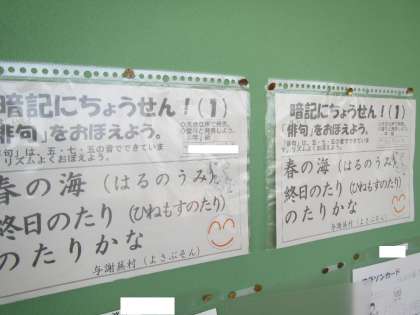 暗記にちょうせん!(1)
「俳句」をおぼえよう。
句」は、五・七・五の音でできていま
リズムよくおぼえよう。
春の海(はるのうみ)
終日のたり(ひねもすのたり)
のたりかな
与謝蕪村(よさぶそん)
暗記にちょうせん!(1)
「俳句」をおぼえよう。
「俳句」は、五・七・五の音でできていま
リズムよくおぼえよう。
春の海(はるのうみ)
終日のたり(ひねもすのたり)
のたりかな
与謝蕪村(よさぶそん)